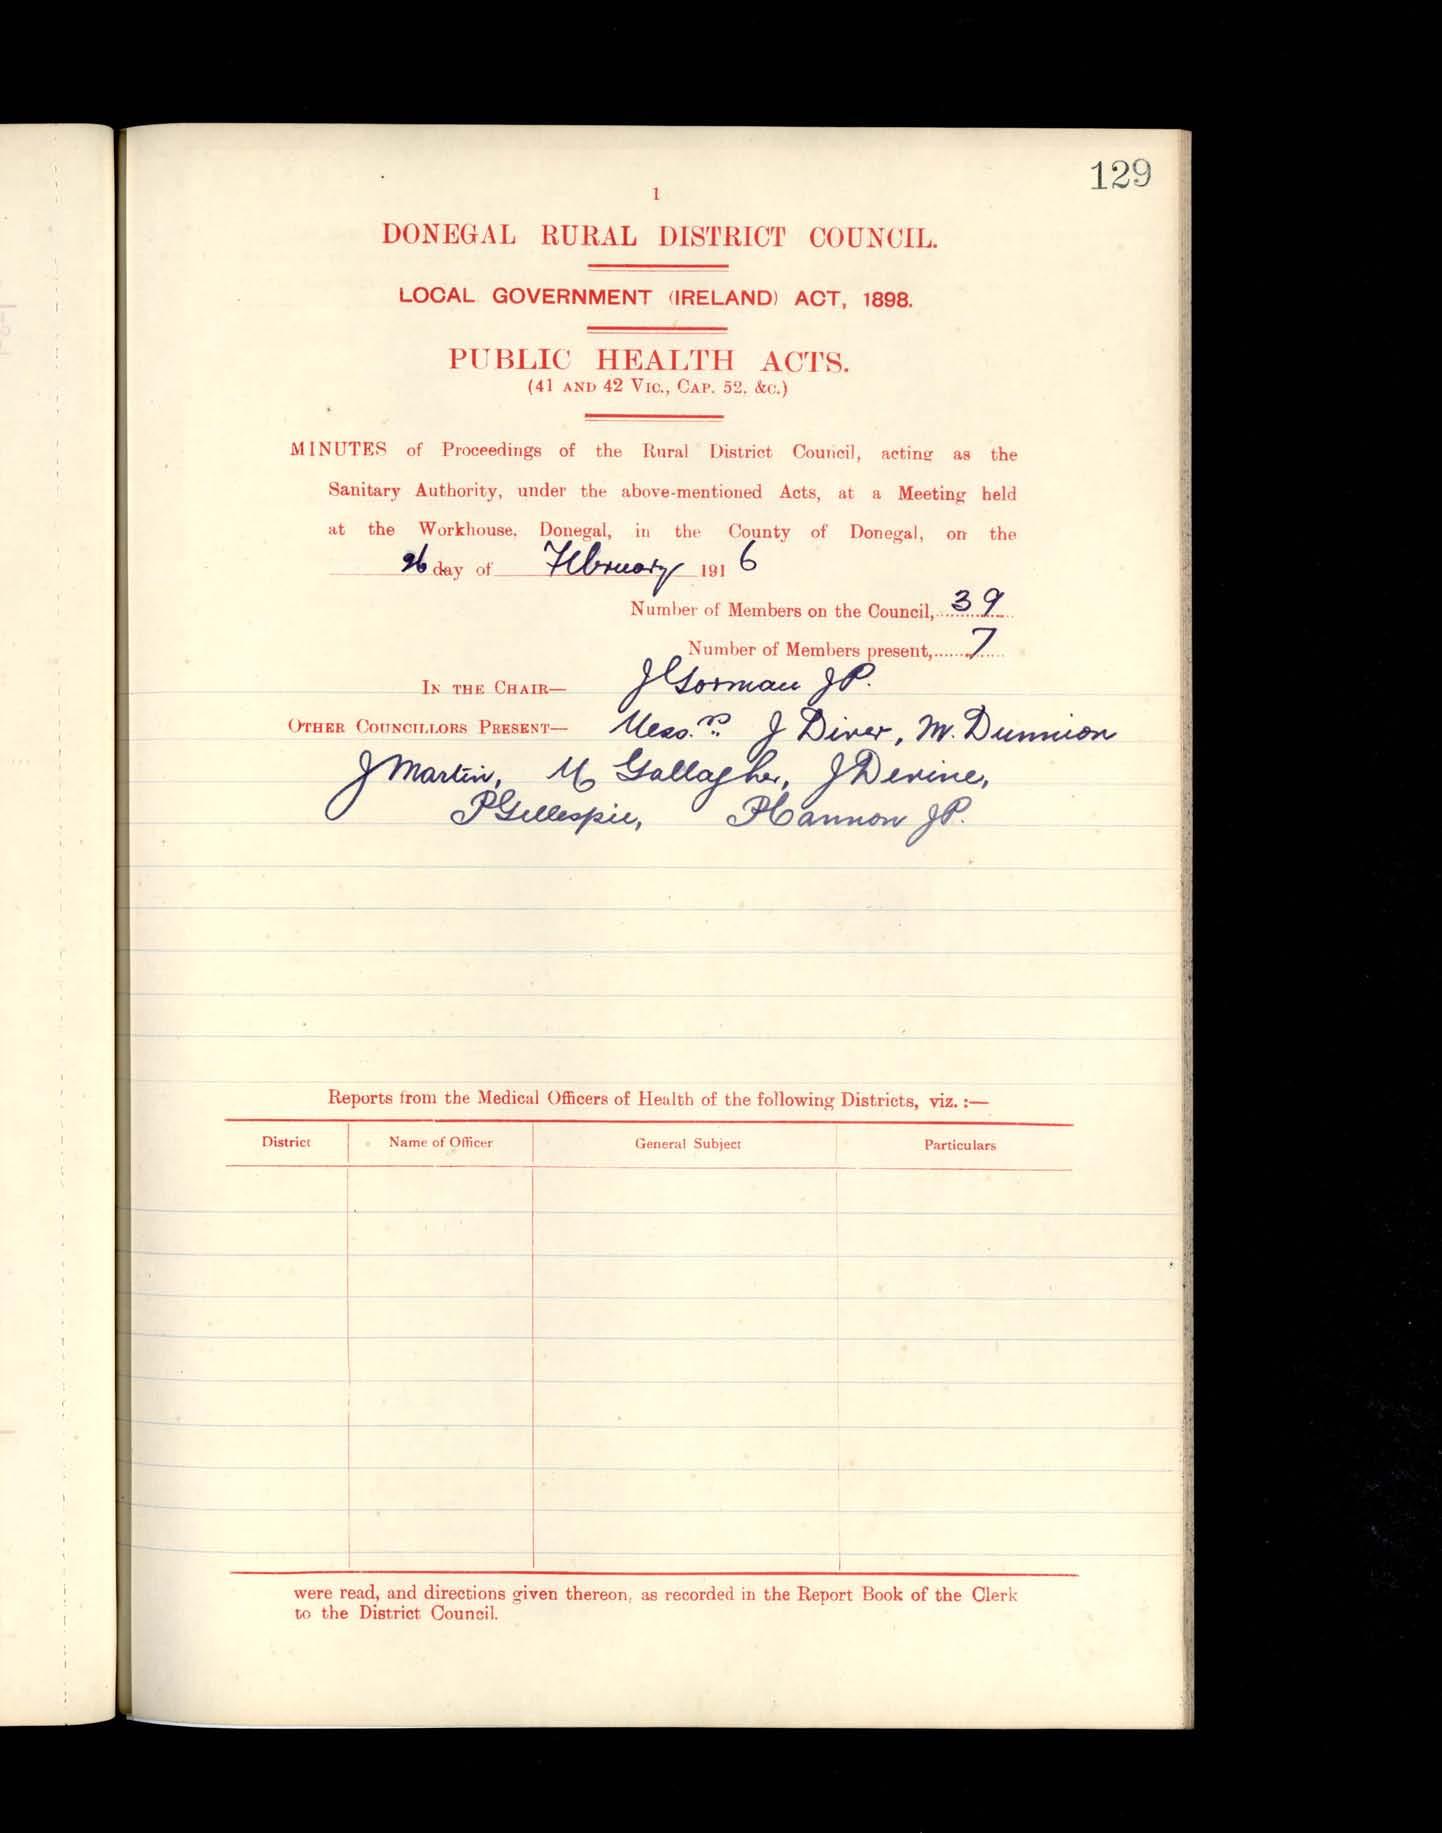 129
1
DONEGAL RURAL DISTRICT COUNCIL.
LOCAL GOVERNMENT (IRELAND) ACT, 1898.
PUBLIC HEALTH ACTS.
(41 AND 42 VIC., CAP. 52, &C.)
MINUTES of Proceedings of the Rural District Council, acting as the
Sanitary Authority, under the above-mentioned Acts, at a Meeting held
at the Workhouse, Donegal, in the County of Donegal, on the
26 day of February 1916
Number of Members on the Council, 39
Number of Members present, 7
IN THE CHAIR— J Gorman JP.
OTHER COUNCILLORS PRESENT— Messrs. J Diver, M. Dunnion
J Martin, M Gallagher, J Devine,
P Gillespie, P Cannon JP.
Reports from the Medical Officers of Health of the following Districts, viz. :—
District Name of Officer General Subject Particulars
were read, and directions given thereon, as recorded in the Report Book of the Clerk
to the District Council.